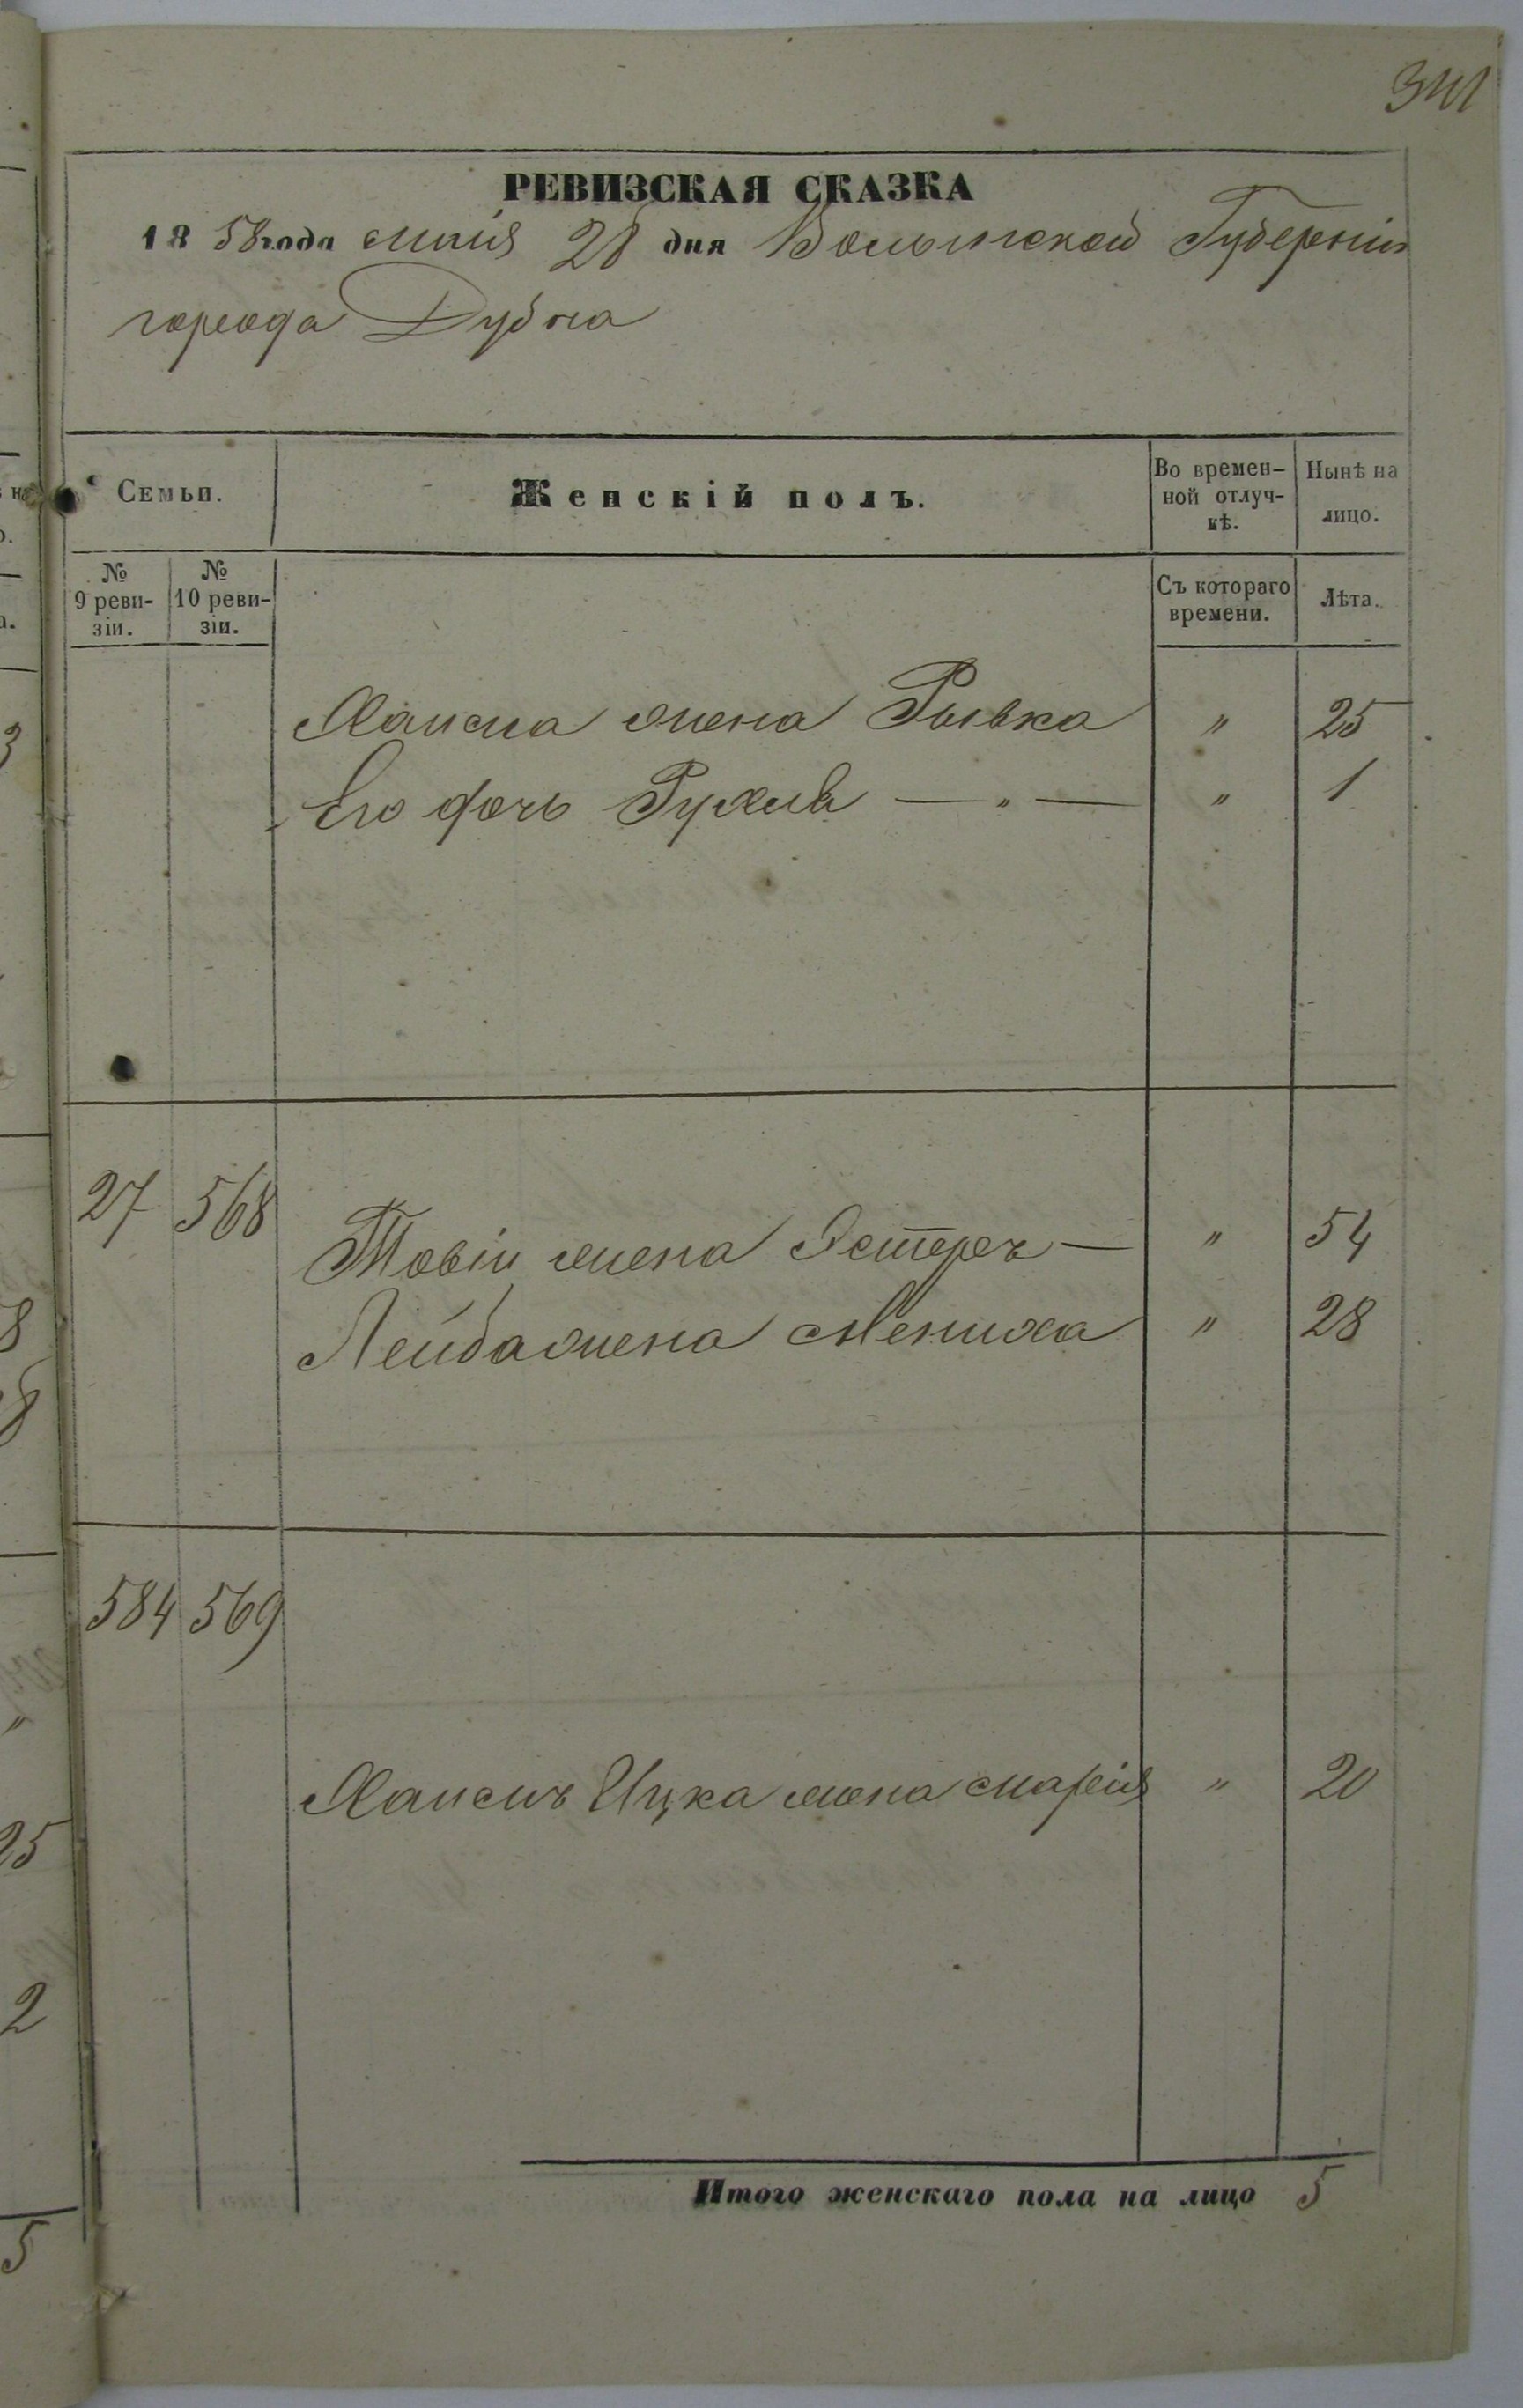 341
РЕВИЗСКАЯ СКАЗКА
18 58 года Маія 28 дня Волынской Губерніи
города Дубна
Семьи.
Женскій полъ.
Во времен-
ной отлуч-
кѣ.
Нынѣ на
лицо.
№
9 реви-
зіи.
№
10 реви-
зіи.
Съ котораго
времени.
Лѣта.
Хаима жена Рывка " 25
Его дочь Рухля — " — " 1
27 568
Товіи жена Эстеръ — " 54
Лейба жена Мениха " 28
584 569
Хаимъ Ицка жена Марія " 20
Итого женскаго пола на лицо 5